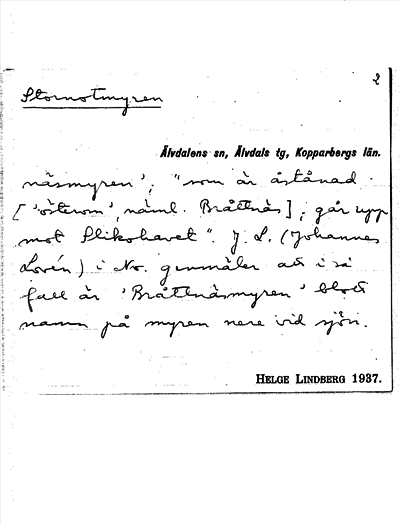 2
Stornotmyren
Älvdalens sn, Älvdals tg, Kopparbergs län.
näsmyren', "som är åstånad
['österom', näml. Bråttnäs], går upp
mot Slikohavet". J. L. (Johannes
Lorén) i No. genmäler att i så
fall är 'Bråttnäsmyren' blott
namn på myren nere vid sjön.
HELGE LINDBERG 1937.